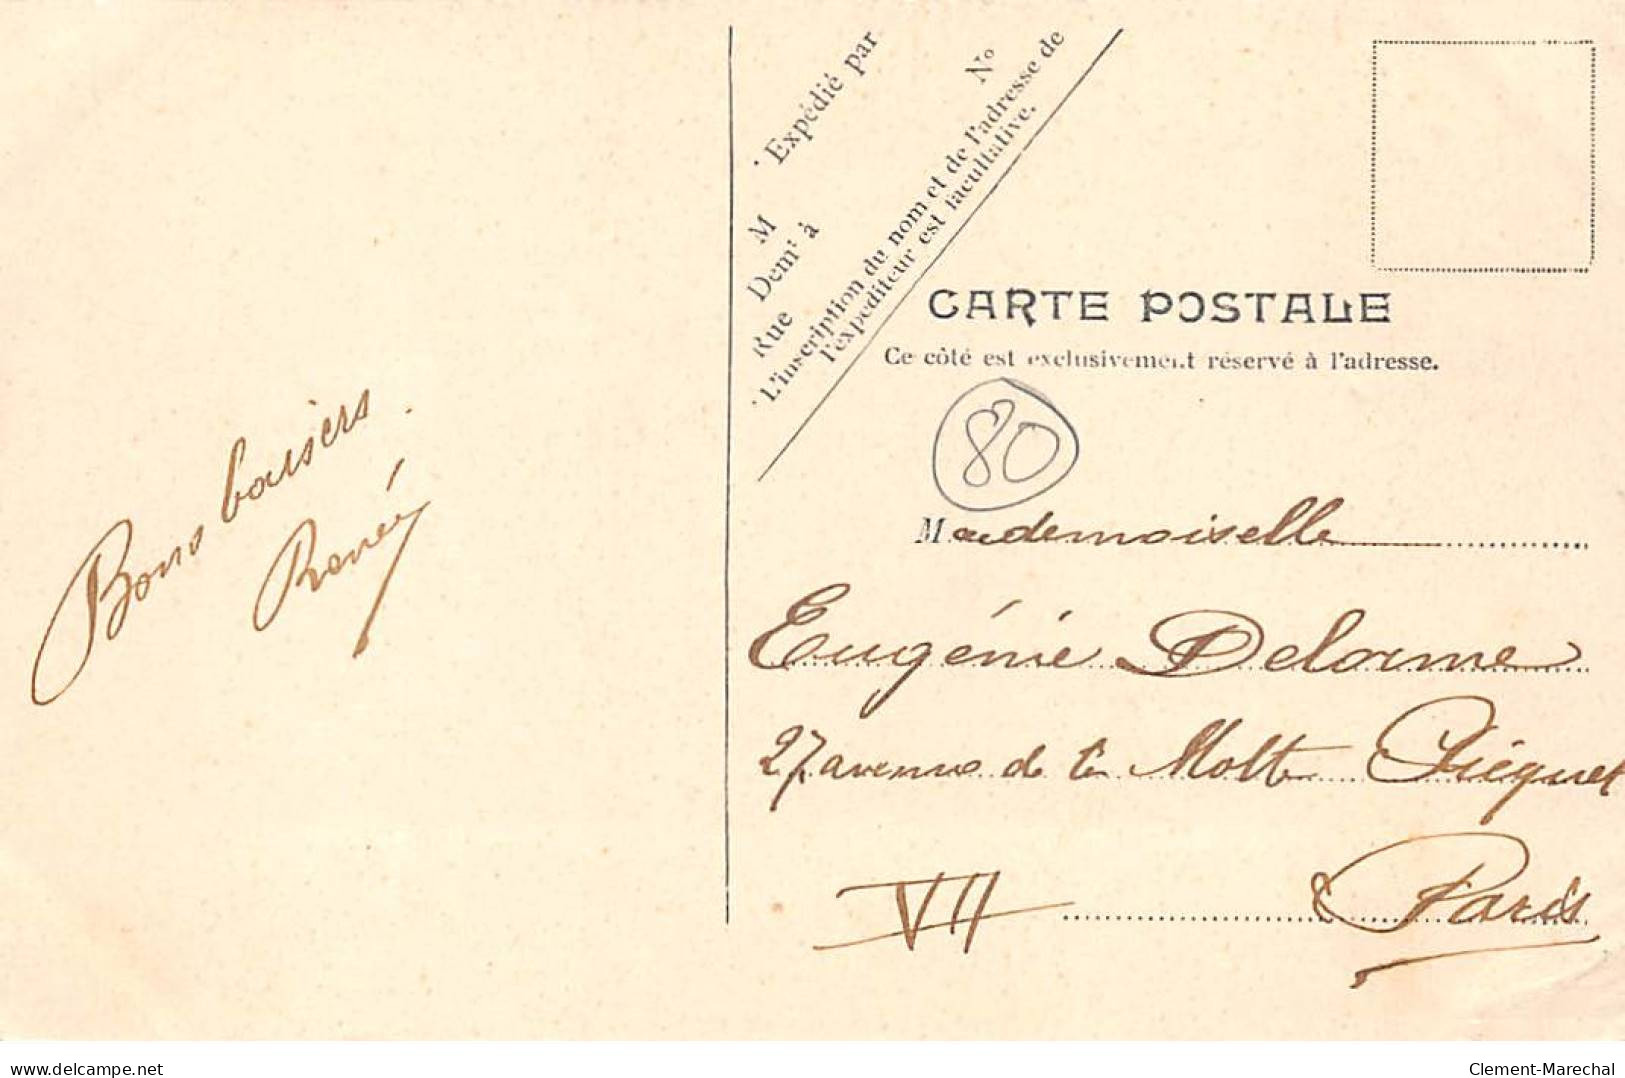 Expédié par
M
Demt à
Rue
No
L'inscription du nom et de l'adresse de
l'expéditeur est facultative.
CARTE POSTALE
Ce côté est exclusivement réservé à l'adresse.
80
Bons baisers
René
Mademoiselle
Eugénie Delorme
27 avenue de la Motte Picquet
VII Paris
www.delcampe.net
Clement-Marechal